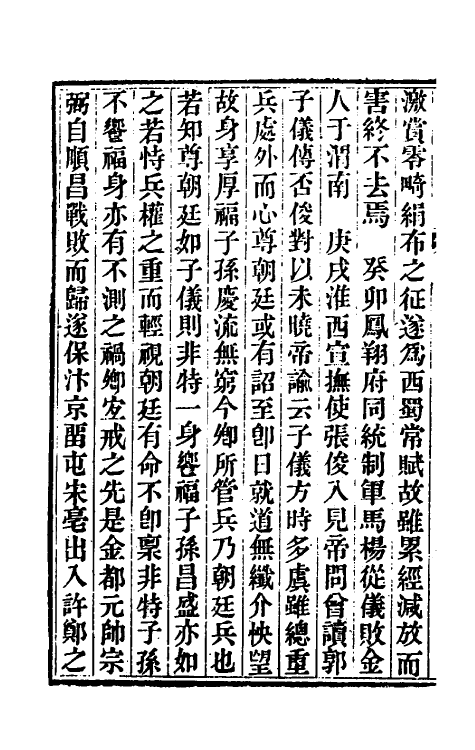 激賞零畸絹布之征遂爲西蜀常賦故雖累經減放而
害終不去焉　癸卯鳳翔府同統制軍馬楊從儀敗金
人于渭南　庚戌淮西宣撫使張俊入見帝問曾讀郭
子儀傳否俊對以未曉帝諭云子儀方時多虞雖總重
兵處外而心尊朝廷或有詔至卽日就道無纖介怏望
故身享厚福子孫慶流無窮今卿所管兵乃朝廷兵也
若知尊朝廷如子儀則非特一身饗福子孫昌盛亦如
之若恃兵權之重而輕視朝廷有命不卽稟非特子孫
不饗福身亦有不測之禍卿宜戒之先是金都元帥宗
弼自順昌戰敗而歸遂保汴京留屯宋亳出入許鄭之